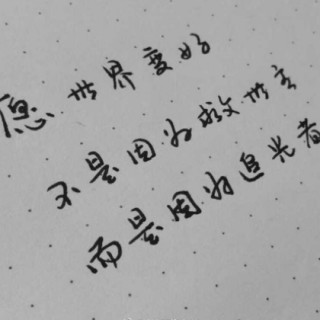 愿世界变好
不是因为救世主
而是因为追光者